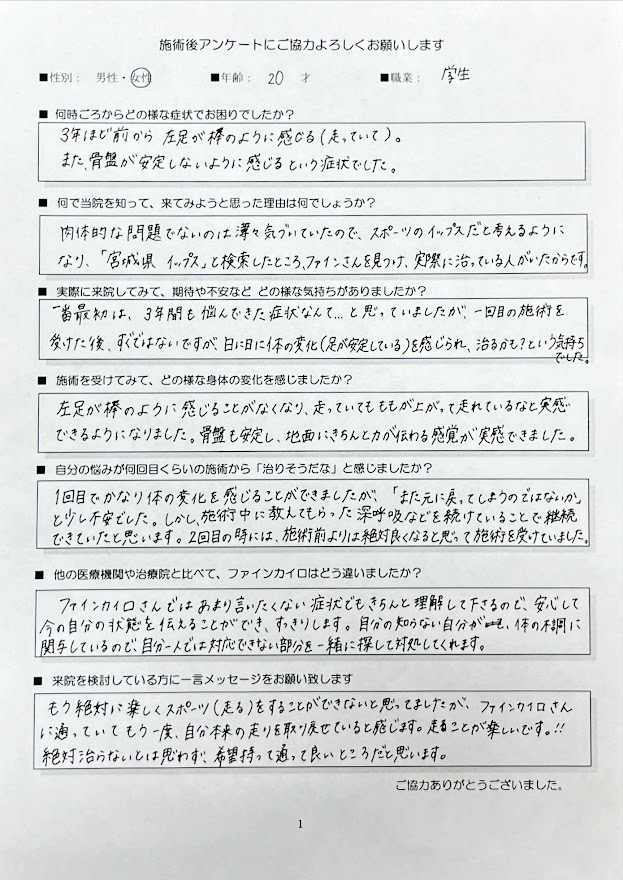 施術後アンケートにご協力よろしくお願いします
■性別： 男性・女性 ■年齢： 20 才 ■職業： 学生
■ 何時ごろからどの様な症状でお困りでしたか？
3年ほど前から 左足が棒のように感じる(走っていて)。
また、骨盤が安定しないように感じるという症状でした。
■ 何で当院を知って、来てみようと思った理由は何でしょうか？
肉体的な問題でないのは薄々気づいていたので、スポーツのイップスだと考えるように
なり、「宮城県 イップス」と検索したところ、ファインさんを見つけ、実際に治っている人がいたからです。
■ 実際に来院してみて、期待や不安など どの様な気持ちがありましたか？
一番最初は、3年間も悩んできた症状なんて…と思っていましたが、一回目の施術を
受けた後、すぐではないですが、日に日に体の変化(足が安定している)を感じられ、治るかも？という気持ち
でした。
■ 施術を受けてみて、どの様な身体の変化を感じましたか？
左足が棒のように感じることがなくなり、走っていてもももが上がって走れているなと実感
できるようになりました。骨盤も安定し、地面にきちんと力が伝わる感覚が実感できました。
■ 自分の悩みが何回目くらいの施術から「治りそうだな」と感じましたか？
1回目でかなり体の変化を感じることができましたが、「また元に戻ってしまうのではないか」
と少し不安でした。しかし、施術中に教えてもらった深呼吸などを続けていることで継続
できていたと思います。2回目の時には、施術前よりは絶対良くなると思って施術を受けていました。
■ 他の医療機関や治療院と比べて、ファインカイロはどう違いましたか？
ファインカイロさんではあまり言いたくない症状でもきちんと理解して下さるので、安心して
今の自分の状態を伝えることができ、すっきりします。自分の知らない自分が、体の不調に
関与しているので、自分一人では対応できない部分を一緒に探して対処してくれます。
■ 来院を検討している方に一言メッセージをお願い致します
もう絶対に楽しくスポーツ(走る)をすることができないと思ってましたが、ファインカイロさん
に通っていてもう一度、自分本来の走りを取り戻せていると感じます。走ることが楽しいです。!!
絶対治らないとは思わず、希望持って通って良いところだと思います。
ご協力ありがとうございました。
1